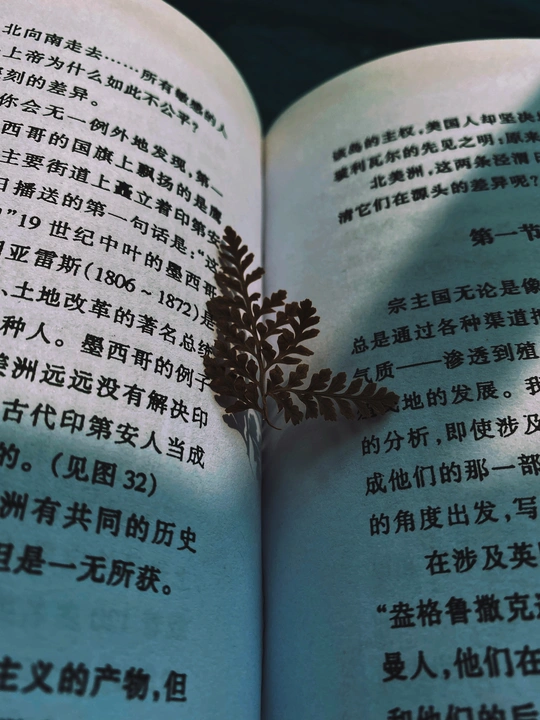 北向南走去……所有敏感的人
上帝为什么如此不公平？
刻的差异。
你会无一例外地发现，第一
西哥的国旗上飘扬的是鹰
主要街道上矗立着印第安
播送的第一句话是：“这
”19世纪中叶的墨西哥
亚雷斯（1806～1872）是
、土地改革的著名总统
种人。墨西哥的例子
美洲远远没有解决印
古代印第安人当成
的。（见图32）
洲有共同的历史
但是一无所获。
主义的产物，但
该岛的主权，美国人却坚决
玻利瓦尔的先见之明；原来
北美洲，这两条泾渭
清它们在源头的差异呢？
第一节
宗主国无论是像
总是通过各种渠道把
气质——渗透到殖
民地的发展。我
的分析，即使涉及
成他们的那一部
的角度出发，写
在涉及英
“盎格鲁撒克逊
曼人，他们在
和他们的后